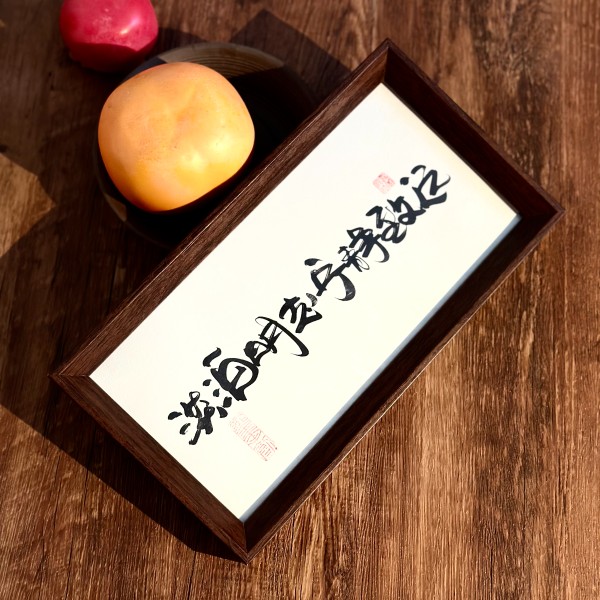 淡泊明志宁静致远